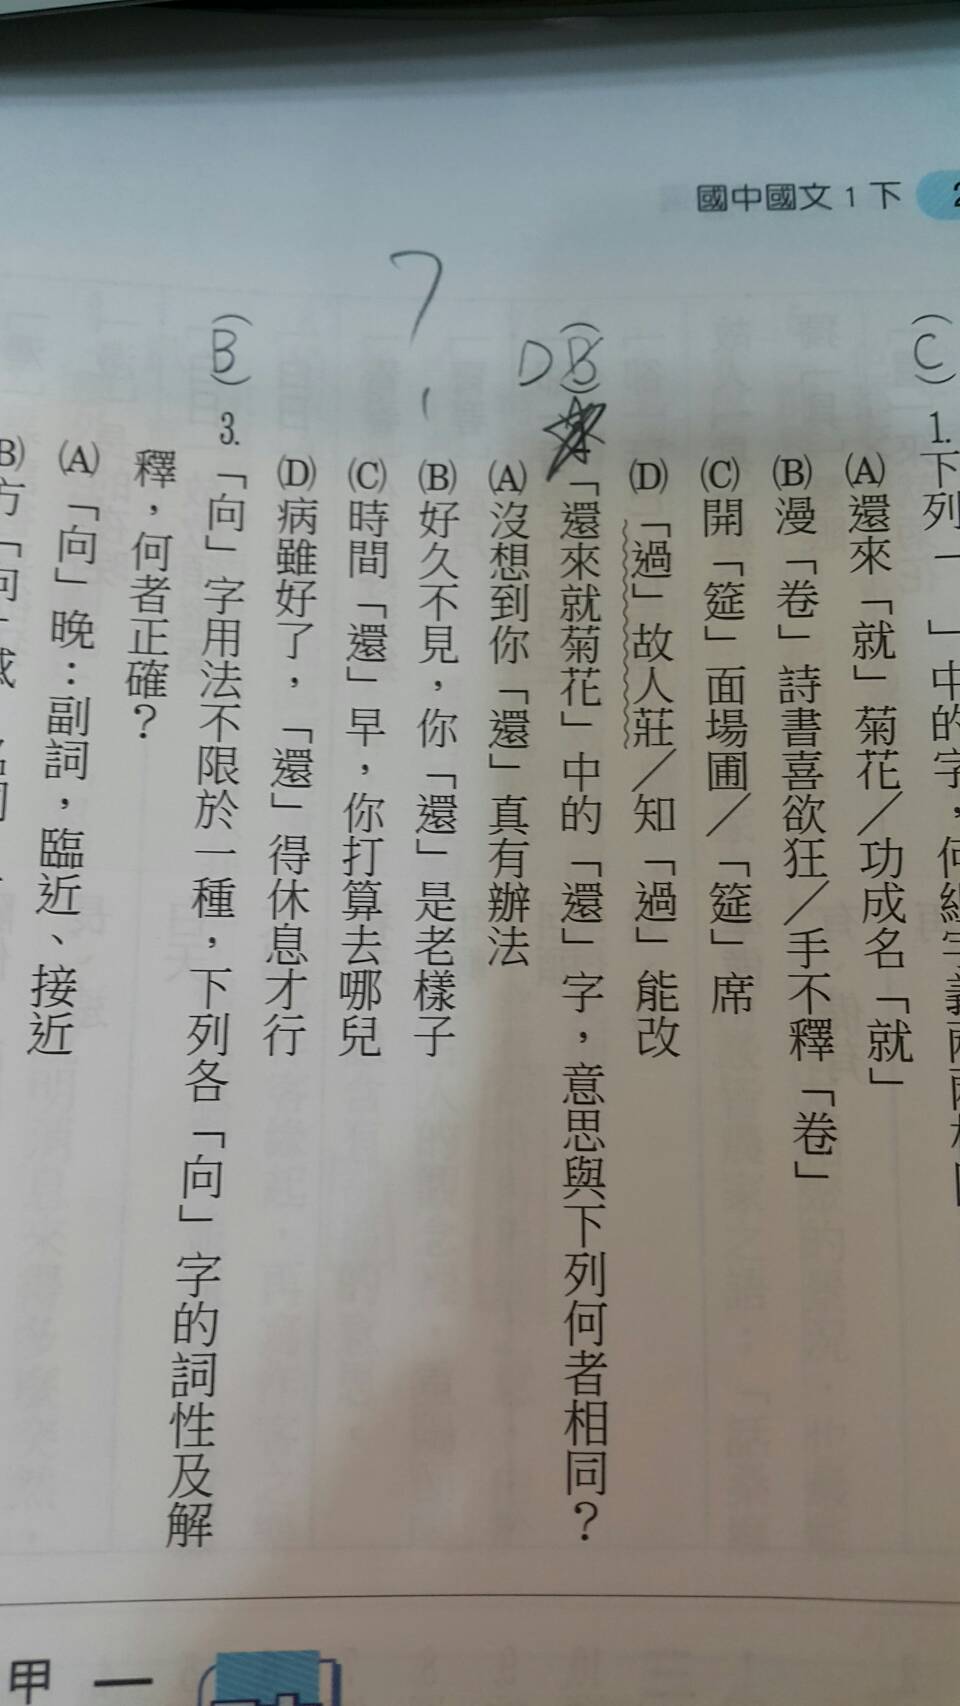 國中國文1下 2
(C) 1. 下列「 」中的字,何組字義兩兩相
(A) 還來「就」菊花/功成名「就」
(B) 漫「卷」詩書喜欲狂/手不釋「卷」
(C) 開「筵」面場圃/「筵」席
(D) 「過」故人莊/知「過」能改
D(B) 「還來就菊花」中的「還」字,意思與下列何者相同?
(A) 沒想到你「還」真有辦法
(B) 好久不見,你「還」是老樣子
?
(C) 時間「還」早,你打算去哪兒
(D) 病雖好了,「還」得休息才行
(B) 3. 「向」字用法不限於一種,下列各「向」字的詞性及解
釋,何者正確?
(A) 「向」晚:副詞,臨近、接近
(B) 方「向」感
甲 一